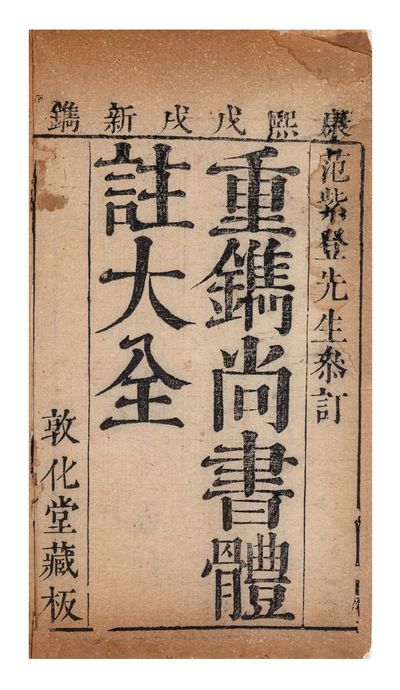 康熙戊戌新鐫
范紫登先生叅訂
重鐫尚書體
註大全
敦化堂藏板